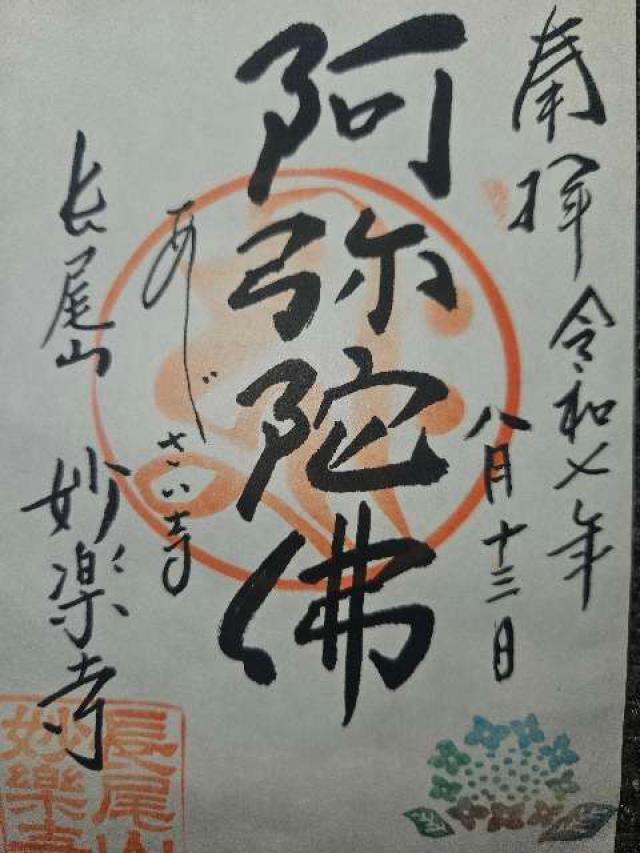 奉拝
令和七年
八月十三日
阿弥陀佛
あじさい寺
長尾山
妙楽寺
長尾山
妙樂寺